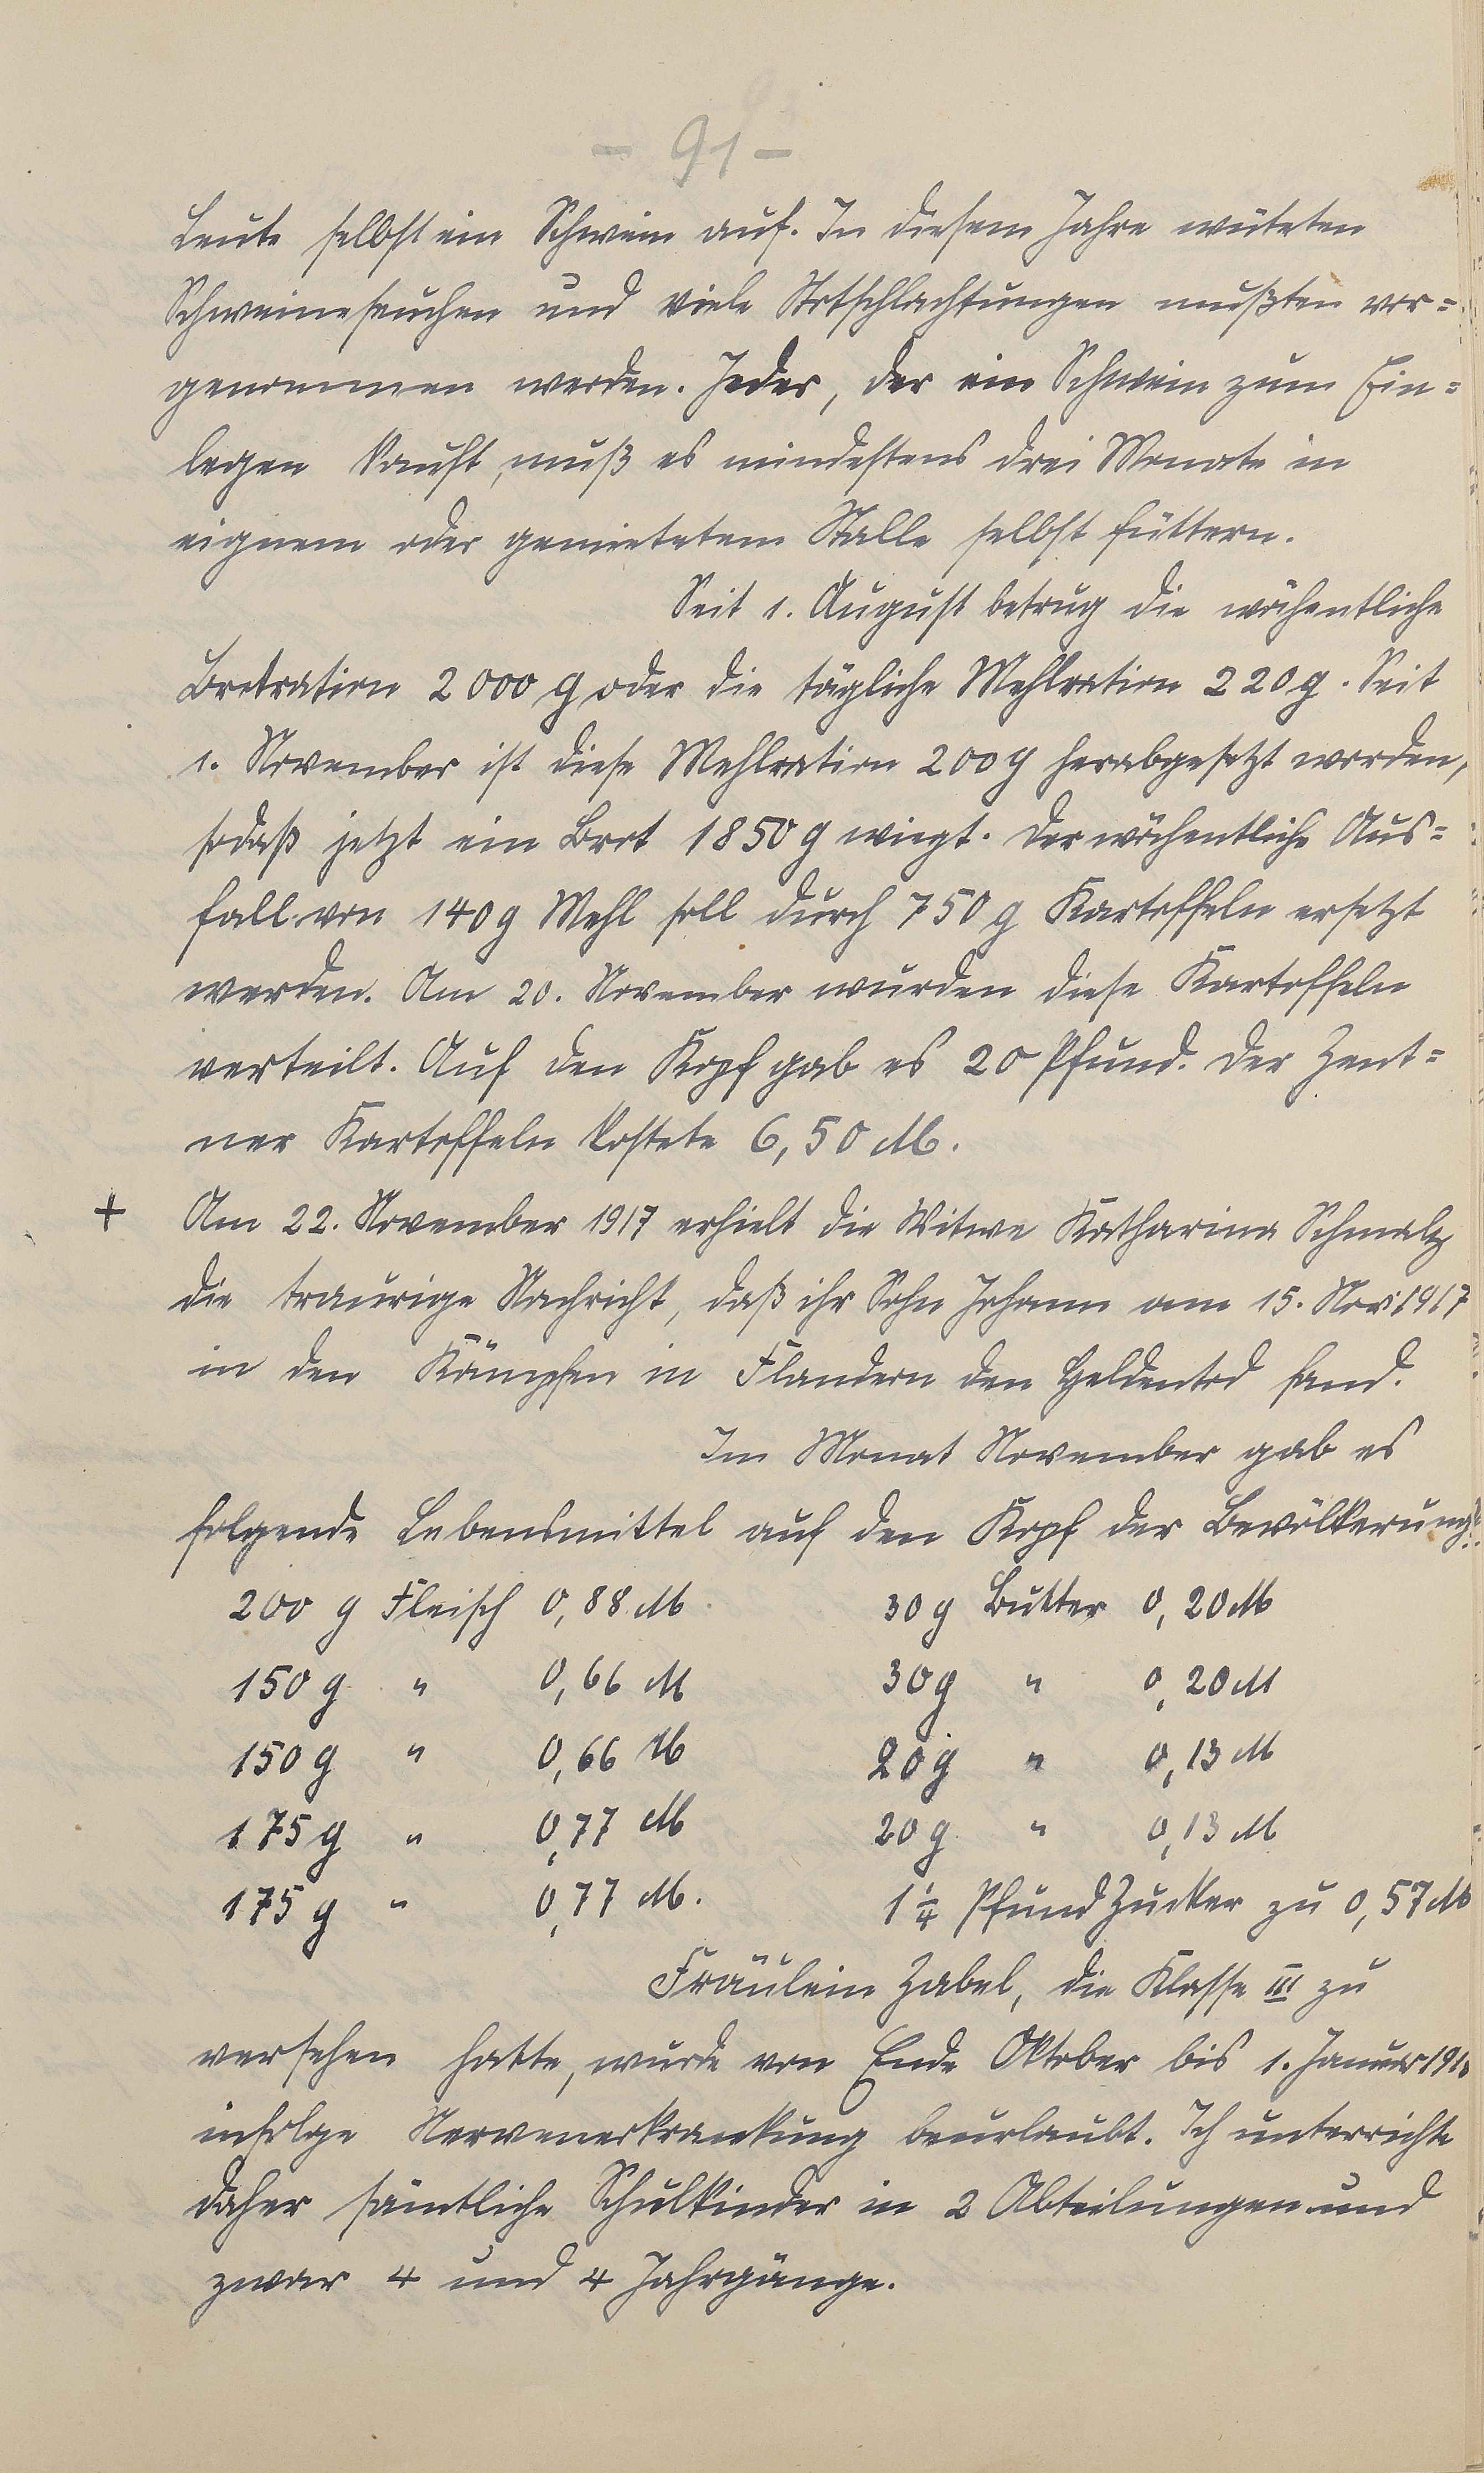 - 91 -
Leute selbst ein Schwein auf. In diesem Jahre wüteten
Schweineseuchen und viele Notschlachtungen mußten vor=
genommen werden. Jeder, der ein Schwein zum Ein=
legen kauft, muß es mindestens drei Monate in
eignem oder gemietetem Stalle selbst füttern.
Seit 1. August betrug die wöchentliche
Brotration 2000 g oder die tägliche Mehlration 220 g. Seit
1. November ist diese Mehlration 200 g herabgesetzt worden,
sodaß jetzt ein Brot 1850 g wiegt. Der wöchentliche Aus=
fall von 140 g Mehl soll durch 750 g Kartoffeln ersetzt
werden. Am 20. November wurden diese Kartoffeln
verteilt. Auf den Kopf gab es 20 Pfund. Der Zent=
ner Kartoffeln kostete 6,50 M.
+ Am 22. November 1917 erhielt die Witwe Katharina Schmalz
die traurige Nachricht, daß ihr Sohn Johann am 15. Nov. 1917
in den Kämpfen in Flandern den Heldentod fand.
Im Monat November gab es
folgende Lebensmittel auf den Kopf der Bevölkerung:
200 g Fleisch 0,88 M. 30 g Butter 0,20 M
150 g " 0,66 M 30 g " 0,20 M
150 g " 0,66 M 20 g " 0,13 M
175 g " 0,77 M 20 g " 0,13 M
175 g " 0,77 M. 1 1/4 Pfund Zucker zu 0,57 M
Fräulein Zabel, die Klasse III zu
versehen hatte, wurde von Ende Oktober bis 1. Januar
infolge Nervenerkrankung beurlaubt. Ich unterrichte
daher sämtliche Schulkinder in 2 Abteilungen und
zwar 4 und 4 Jahrgänge.